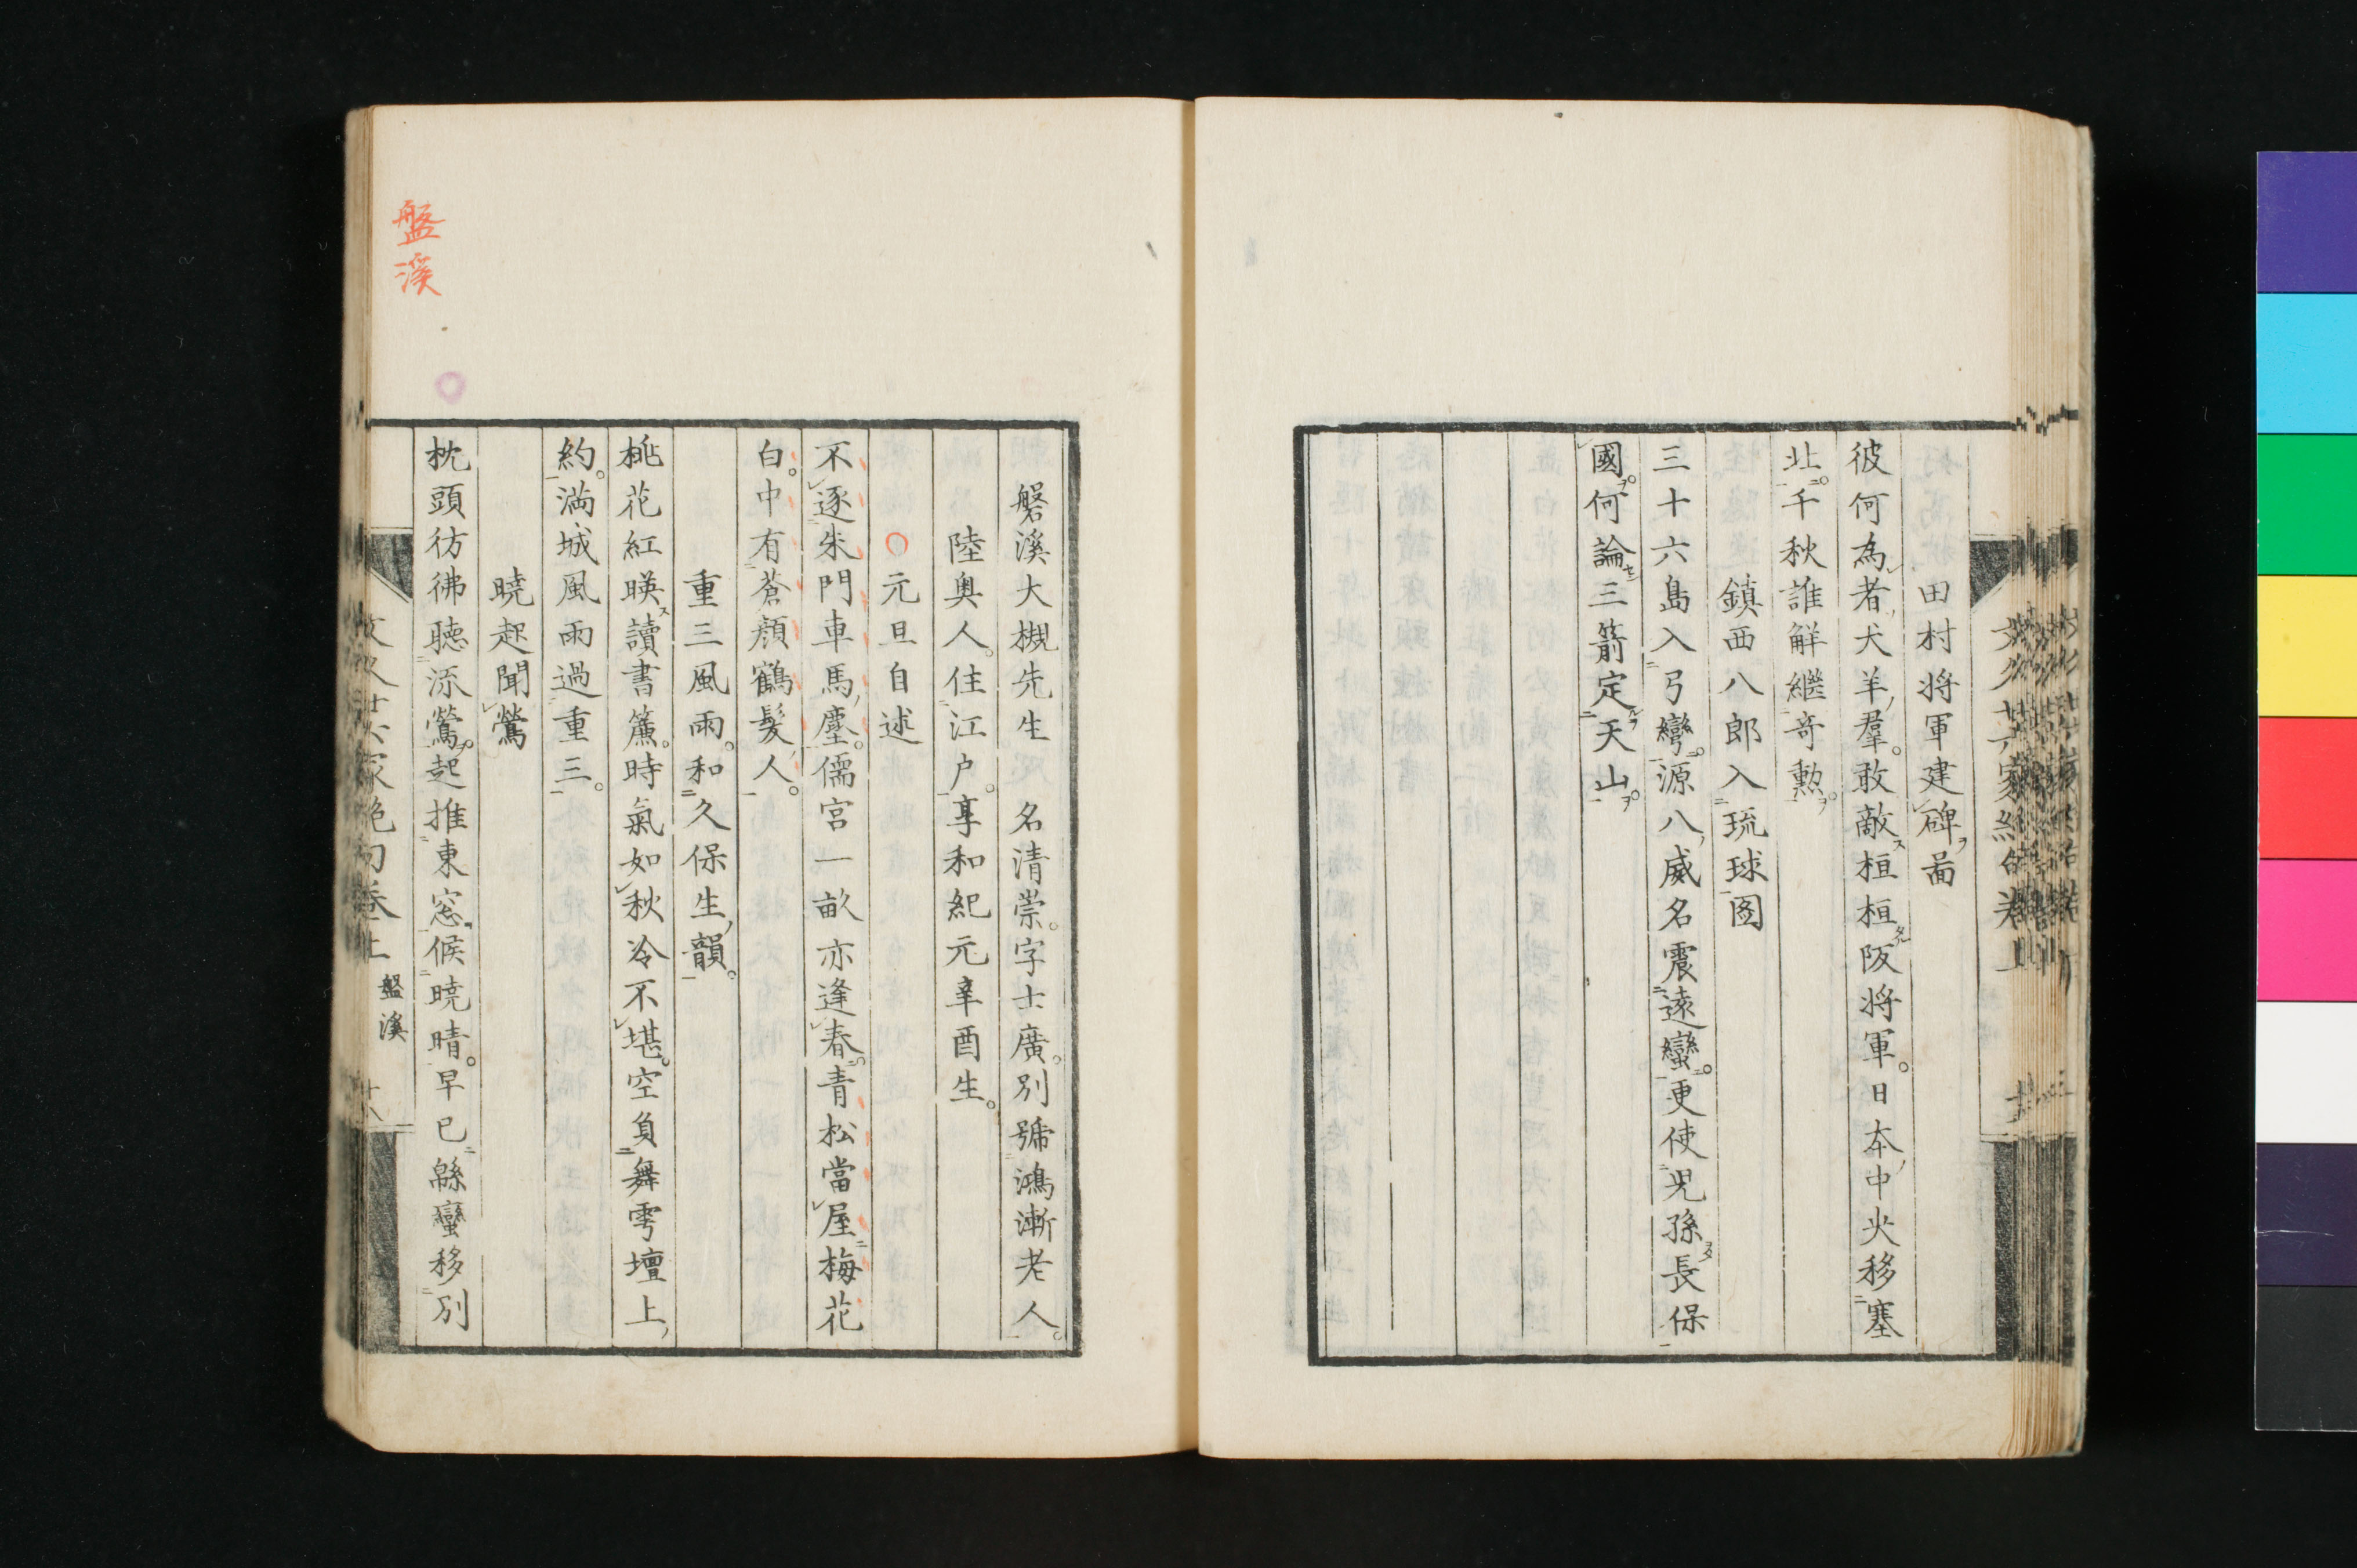 田村将軍建碑圖
彼何為者犬羊羣。敢敵桓桓阪将軍。日本中央移塞
北。千秋誰解繼奇勲。
鎮西八郎入琉球図
三十六島入弓彎。源八威名震遠蠻。更使児孫長保
國。何論三箭定天山。
磐溪大槻先生　名清崇。字士廣。別號鴻漸老人。
陸奥人。住江戸。享和紀元辛酉生。
元旦自述
不逐朱門車馬塵。儒宮一畝亦逢春。青松當屋梅花
白。中有蒼顔鶴髪人。
重三風雨。和久保生韻。
桃花紅暎讀書簾。時氣如秋冷不堪。空負舞雩壇上
約。満城風雨過重三。
暁起聞鶯
枕頭彷彿聴流鶯。起推東窓候暁晴。早已緜蠻移別
文久廿六家絶句巻上　盤溪　十八
盤溪